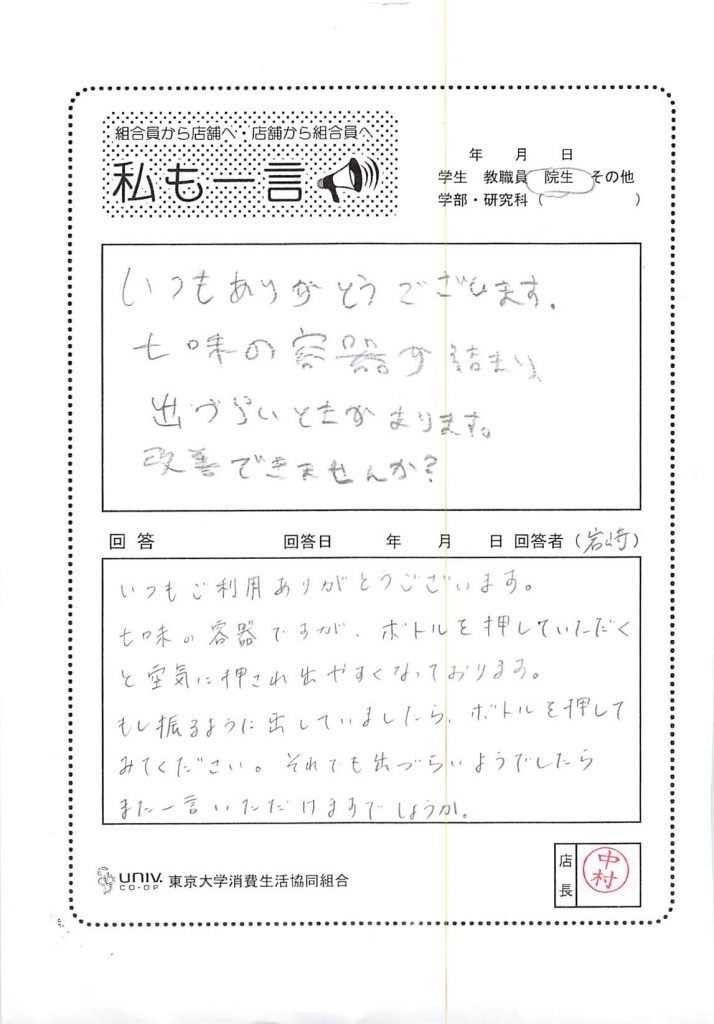 組合員から店舗へ・店舗から組合員へ
私も一言
年 月 日
学生 教職員 院生 その他
学部・研究科( )
いつもありがとうございます。
七味の容器が詰まり、
出づらいときがあります。
改善できませんか?
回答 回答日 年 月 日 回答者(岩崎)
いつもご利用ありがとうございます。
七味の容器ですが、ボトルを押していただく
と空気に押され出やすくなっております。
もし振るように出していましたら、ボトルを押して
みてください。それでも出づらいようでしたら
また一言いただけますでしょうか。
UNIV.
CO-OP
東京大学消費生活協同組合
店長
中村